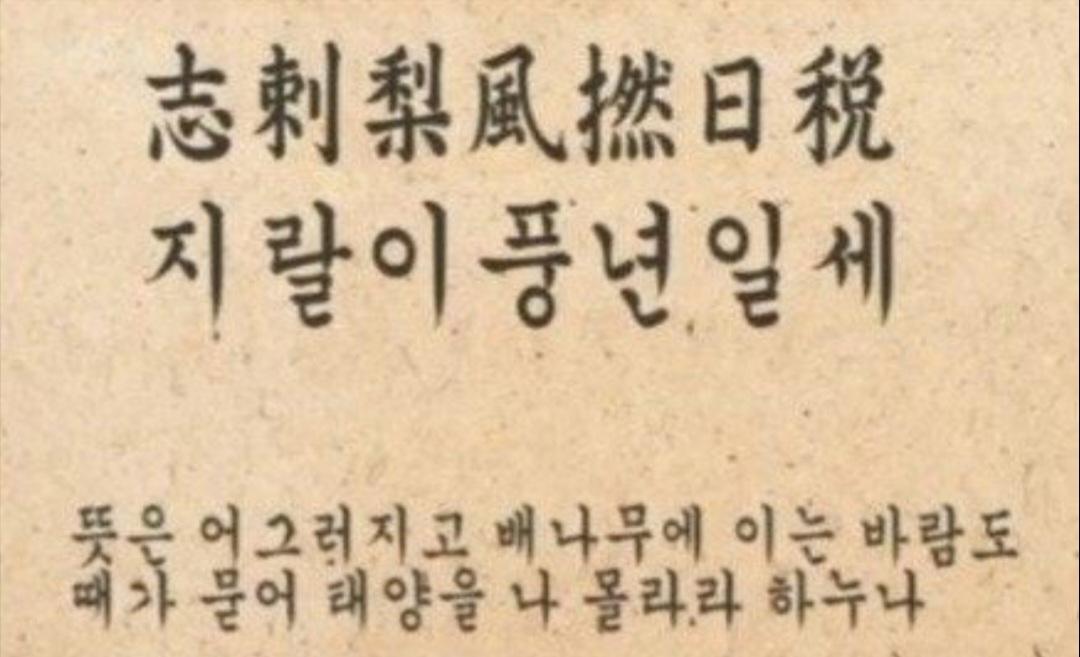 志剌梨風撚日税
지랄이풍년일세
뜻은 어그러지고 배나무에 이는 바람도
때가 묻어 태양을 나 몰라라 하누나